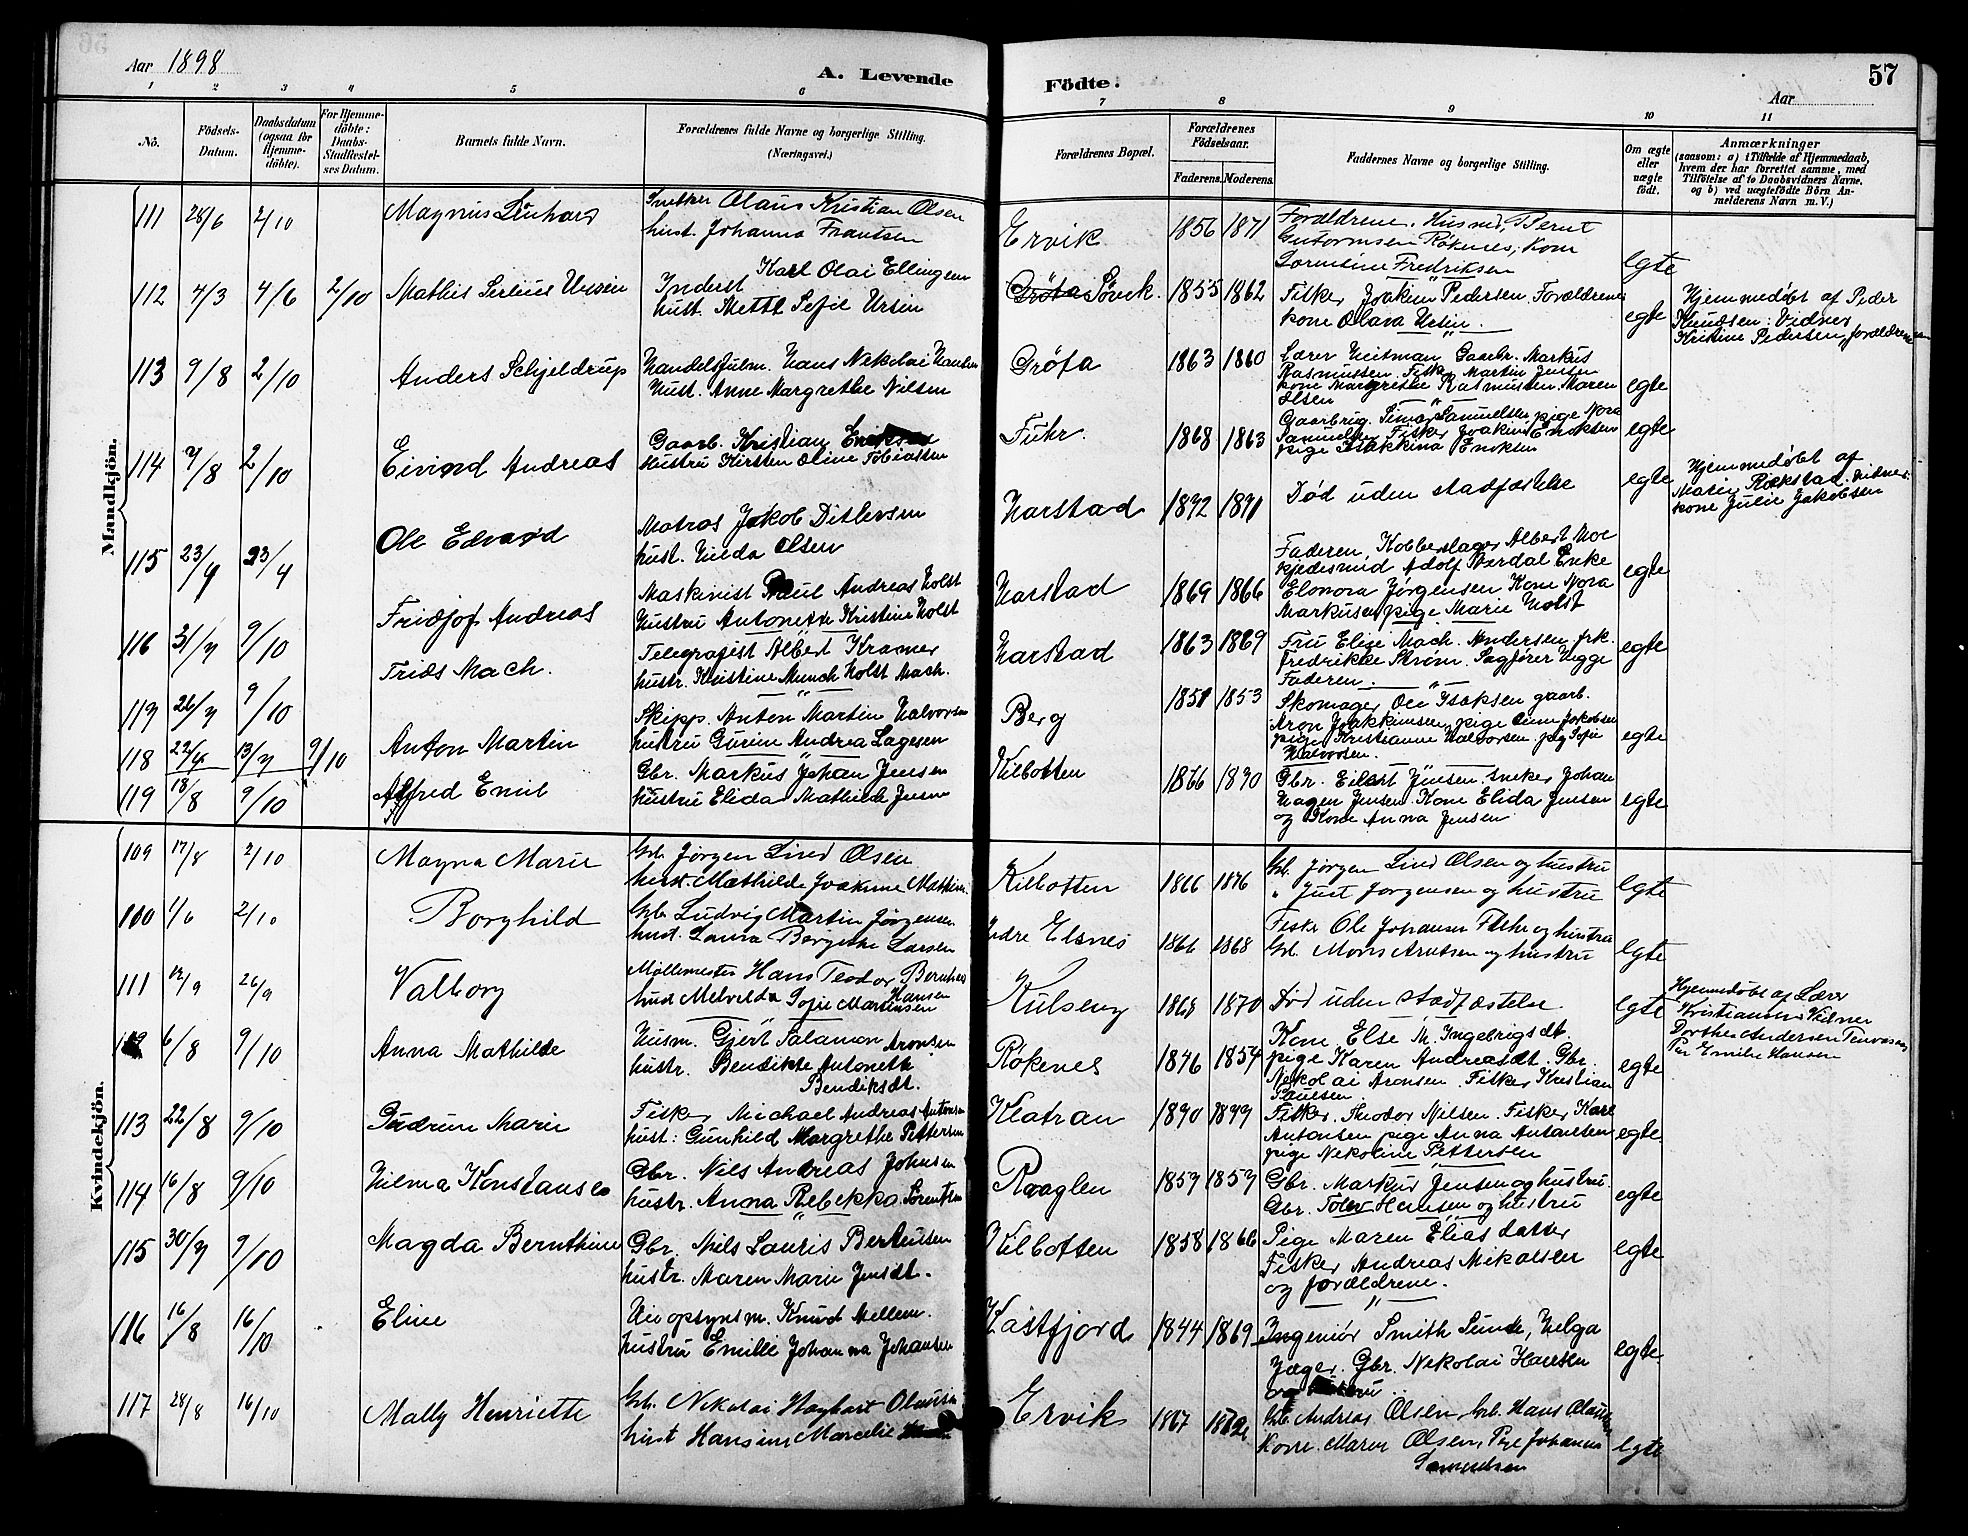 Aar 1898
A. Levende Födte.
57
Aar
1 2 3 4 5 6 7 8 9 10 11
No.
Födsels-Datum.
Daabsdatum (ogsaa for Hjemmedöbte).
For Hjemmedöbte: Daabs-Stadfæstelses Datum.
Barnets fulde Navn.
Forældrenes fulde Navne og borgerlige Stilling. (Næringsvei.)
Forældrenes Bopæl.
Forældrenes Födselsaar.
Faderens. Moderens.
Faddernes Navne og borgerlige Stilling.
Om ægte eller uægte födt.
Anmærkninger
(saasom: a) i Tilfælde af Hjemmedaab, hvem der har forrettet samme, med Tilföielse af to Daabsvidners Navne. og b) ved uægtefödte Börn Anmelderens Navn m. V.)
Mandkjön.
111 28/6 2/10 Magnus Lenhard
Snetker Olaus Kristian Olsen
hust. Johanna Frantsen
Ervik 1856 1871
Forældrene, Husmd. Bernt
Guttormsen Røkenes, Kone
Lorentine Fredriksen
egte
112 4/3 4/6 2/10 Mathis Serluus Ursin
Inderst Karl Olai Ellingsen
hust. Mette Sofie Ursin
Grøfa Sørvik. 1855 1862
Fisker Joakim Pedersen. Forældrene
kone Olava Ursin
egte
Hjemmedøbt af Peder
Knudsen: Vidner
Kristine Pedersen, forældrene
113 9/8 2/10 Anders Schjeldrup
Handelsfulm. Hans Nikolai Hansen
Hust. Anne Margrethe Nilsen
Grøfa 1863 1860
Lærer Heitman, Gaarbr. Markus
Rasmussen. Fisk. Martin Jensen
kone Margrethe Rasmussen. Maren
Olsen
egte
114 7/8 2/10 Eivind Andreas
Gaarb. Kristian Eriksen
Hustru Kirsten Oline Tobiassen
Fuhr. 1868 1863
Gaarbrug. Simon Samuelsen pige Nora
Samuelsen Fisker Joakim Enoksen
pige Isakkina Enoksen
egte
115 23/4 23/4 Ole Edvard
Matros Jakob Ditlevsen
hust. Hilda Olsen
Harstad 1872 1871
Død uden stadfæstelse
egte
Hjemmedøbt af
Matin Rækstad. Vidner:
kone Julie Jakobsen
116 31/7 9/10 Fridjof Andreas
Maskinist Paul Andreas Holst
Hustru Antonette Kristine Holst
Harstad 1869 1866
Faderen, Kobberslager Albert Moe
kjedesmid Adolf Værdal Enke
Elonora Jørgensen Kone Nora
Markusen, pige. Marie Holst
egte
117 26/7 9/10 Frids Mach.
Telegrafist Albert Kramer
hustr. Kristine Munch Holst Mach.
Harstad 1863 1869
Fru Elise Mach. Andersen. frk.
Fredrikke Strøm. Sagfører Vigge
Faderen.
egte
118 22/4 13/7 9/10 Anton Martin
Skipp. Anton Martin Halvorsen
hustru Gurine Andrea Lagesen
Berg 1851 1853
Skomager Ole Isaksen gaarb.
Aron Joakkimsen, pige Anne Jakobsen
pige Kristianne Halvorsen. pig Sofie
Halvorsen.
egte
119 18/8 9/10 Alfred Emil
Gbr. Markus Johan Jensen
hustru Elida Mathilde Jensen
Kilbotten 1866 1870
Gbr. Eilert Jensen. sneker Johan
Hagen Jensen. Kone Elida Jensen
og Kone Anna Jensen
egte
Kvindekjön.
109 17/8 2/10 Magna Marie
Gb. Jørgen Lind Olsen
hust. Mathilde Joakime Mathine.
Kilbotten 1866 1876
Gb. Jørgen Lind Olsen og hustru
" Just Jørgensen og hustru
egte
100 1/6 2/10 Borghild
Gb. Ludvig Martin Jørgensen
hust. Laura Bergitte Larsen
Indre Elsnes 1866 1868
Fisker Ole Johansen Fuhr og hustru
Gb. Mons Arntsen og hustru
egte
111 12/9 26/9 Valborg
Møllemester Hans Teodor Bernhard Hansen
hust Melvilda Sofie Martinsen
Kulseng 1868 1870
Død uden stadfæstelse
egte
Hjemmedøbt af Lærer
Kristiansen Vidner
Dorthea Andersen Tenvasaas
Per Emilie Hansen
112 6/8 9/10 Anna Mathilde
Husm. Gjert Salamon Aronsen
hustr. Bendikte Antonette
Bendiksdt.
Røkenes 1846 1854
Kone Else M. Ingebrigsdt
pige Karen Andreasdt. Gbr.
Nekolai Aronsen. Fisker Kristian
Paulsen
egte
113 22/8 9/10 Gudrun Marie
Fisker Michael Andreas Antonsen
hust: Gunhild Margrethe Pettersen
Klatran 1870 1877
Fisker. Theodor Nilsen. Fisker Karl
Antonsen pige Anna Antonsen
pige Nekoline Pettersen
egte
114 16/8 9/10 Hilma Konstanse
Gbr. Nils Andreas Johnsen
hustr. Anna Rebekka Sørentsen
Rogglen 1857 1857
Gbr. Markus Jensen og hustru.
Gbr. Tolev Hansen og hustru
egte
115 30/7 9/10 Magda Bernthine
Gbr. Nils Lauris Berteusen
hustr. Maren Marie Jensdt.
Kilbotten 1858 1866
Pige Maren Eliasdatter
Fisker Andreas Mikalsen
og forældrene.
egte
116 16/8 16/10 Eline
Vei opsynsm. Knud Mellem.
hustru Emilie Johanna Johansen
Kastfjord 1844 1869
Ingeniør Smith Sunde, Helga
Jæger. Gbr. Nekolai Hansen
og hustru.
egte
117 28/8 16/10 Mally Henriette
Gb. Nikolai Hagbart Olaussen
hust Hansine Marcelie
Ervik 1867 1872
Gb Andreas Olsen, Gb. Hans Olaussen
Kone. Maren Olsen, Pige Johanna
Samuelsen
egte